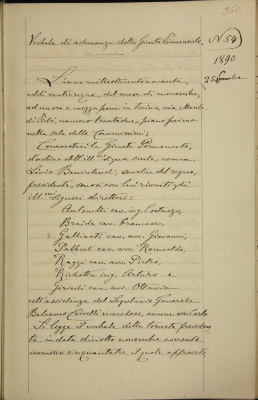 360.
Verbale di adunanza della Giunta Permanente.
N 54
1890
25 9mbre
L'anno milleottocentonovanta,
addì venticinque del mese di novembre,
ad un'ora e mezza pom. in Torino, via Monte
di Pietà, numero trentadue, piano primo
nella sala delle Commissioni;
Convocatasi la Giunta Permanente,
d'ordine dell'ill.mo signor conte, comm.
Livio Benintendi, senatore del regno,
presidente, sonosi con lui riuniti gli
ill.mi signori direttori:
Antonelli cav. ing. Costanzo,
Braida cav. Francesco,
Gallinati cav. avv. Giovanni,
Palberti cav. avv. Romualdo,
Raggi cav. avv. Pietro,
Ricchetta ing. Arturo e
cav. avv. Ottavio
coll'assistenza del Segretario Generale
Balsamo Crivelli marchese, comm. avv. Carlo
Si legge il verbale della tornata preceden-
te, in data diciotto novembre corrente
numero cinquantatre, il quale è approvato,